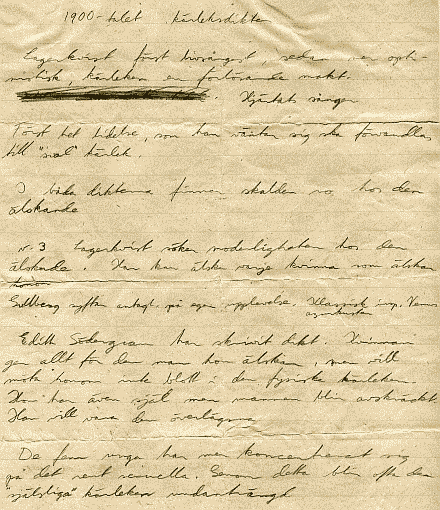 1900-talet kärleksdikter
Lagerkvist först livsångest, sedan mer opti-
mistisk, kärleken en förlösande makt.
Hjärtats sånger
Först het lidelse, som han väntar sig ska förvandlas
till "sval" kärlek.
I båda dikterna finner skalden ro hos den
älskande
v. 3 Lagerkvist söker moderligheten hos den
älskade. Han kan älska varje kvinna som älskar
honom
Gullberg syftar antagl. på egen upplevelse. Klassisk insp. Venus
Edith Södergran har skrivit dikt. Kvinnan
ger allt för den man hon älskar, men vill
möta honom inte blott i den fysiska kärleken
Hon har även själ men mannen blir avskräckt.
Han vill vara den överlägsna
De fem unga har mer koncentrerat sig
på det rent sexuella. Genom detta blir ofta den
"själsliga" kärleken undanträngd